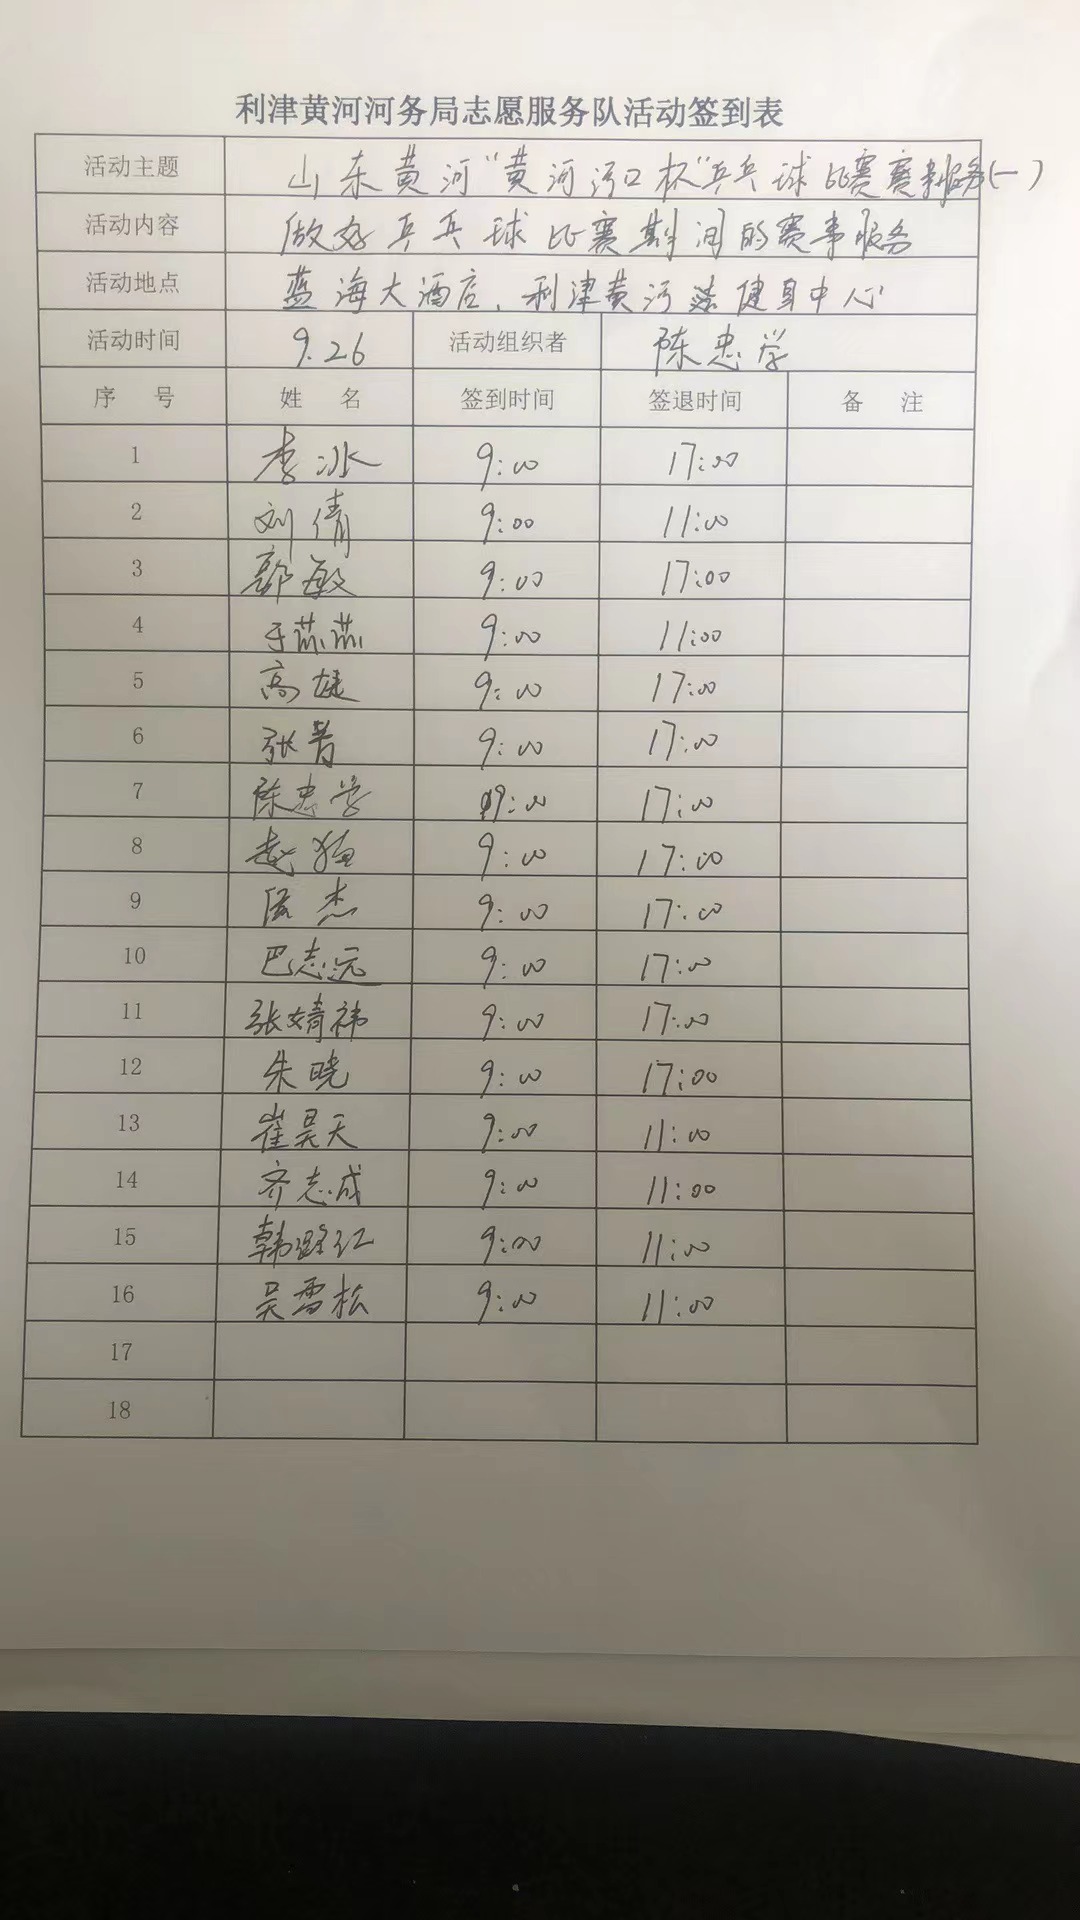 利津黄河河务局志愿服务队活动签到表
活动主题 山东黄河“黄河河口杯”乒乓球比赛赛事服务(一)
活动内容 做好乒乓球比赛期间的赛事服务
活动地点 蓝海大酒店、利津黄河 健身中心
活动时间 9.26 活动组织者 陈忠学
序 号 姓 名 签到时间 签退时间 备 注
1 李冰 9:00 17:00
2 刘倩 9:00 11:00
3 郭敏 9:00 17:00
4 于燕燕 9:00 11:00
5 高雄 9:00 17:00
6 张菁 9:00 17:00
7 陈忠学 9:00 17:00
8 赵 9:00 17:00
9 杰 9:00 17:00
10 巴志远 9:00 17:00
11 张婧祎 9:00 17:00
12 朱晓 9:00 17:00
13 崔昊天 9:00 11:00
14 齐志成 9:00 11:00
15 韩路红 9:00 11:00
16 吴雪松 9:00 11:00
17
18